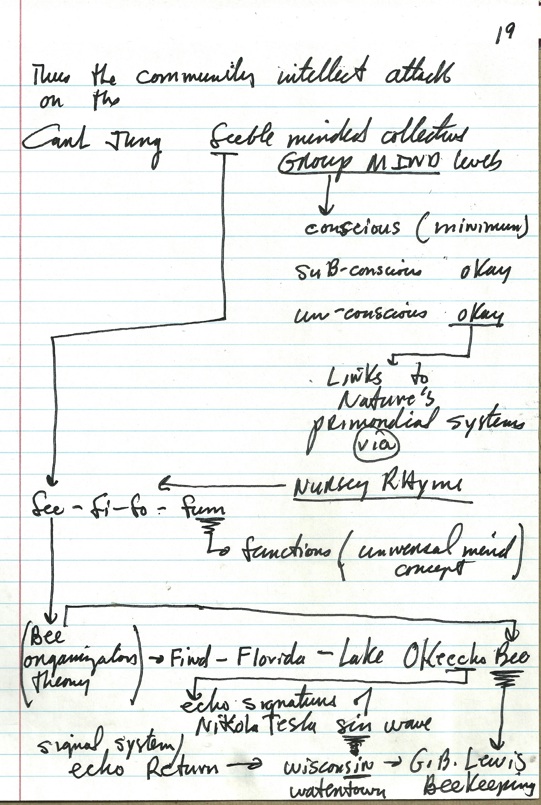 19
Thus the community intellect attack
on the
Carl Jung feeble minded collective
Group MIND levels
conscious (minimum)
suB-conscious okay
un-conscious okay
Links to
Nature's
primordial systems
via
Nursey RHyme
fee - fi - fo - fum
functions (universal mind
concept)
(Bee
organization
theory) → Find - Florida - Lake OKeechoBee
echo signature of
Nikola Tesla sin wave
signal system/
echo Return → wisconsin → G.B. Lewis
watertown BeeKeeping